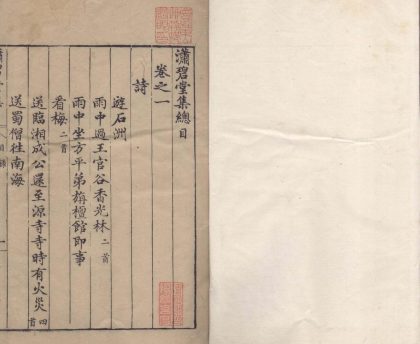 瀟碧堂集總目
卷之一
詩
遊石洲
雨中過王官谷香光林二首
雨中坐方平弟旃檀館即事
看梅二首
送臨湘成公還至源寺寺時有火災四首
送蜀僧往南海